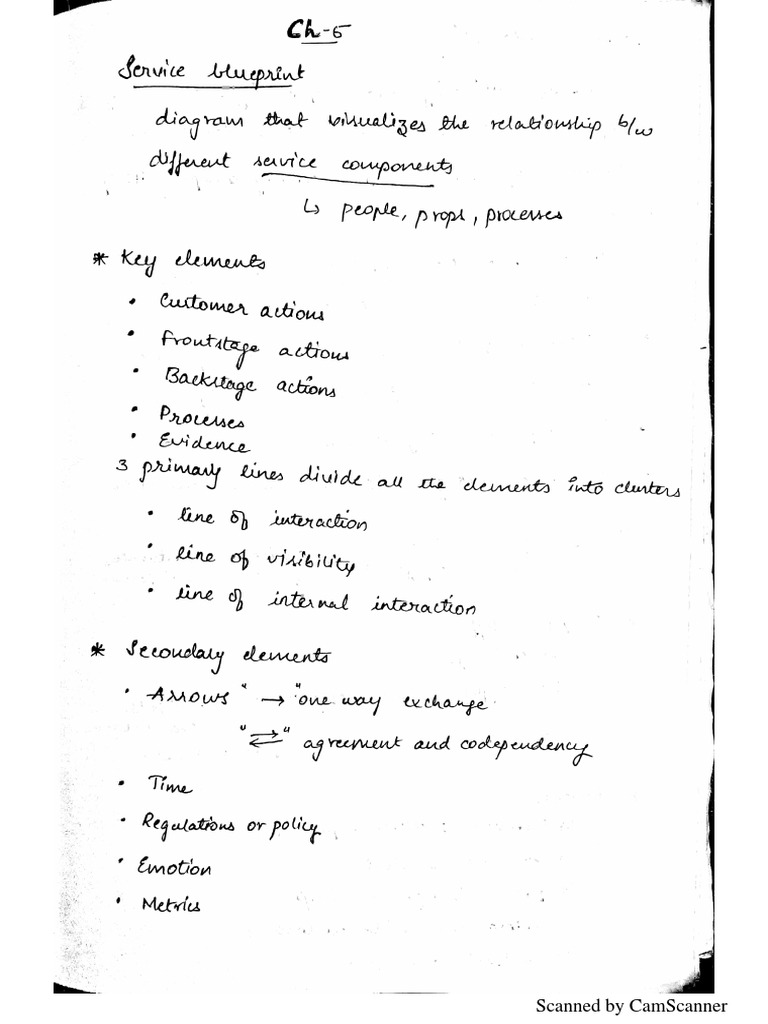 Ch-5
Service blueprint
diagram that visualizes the relationship b/w
different service components
↳ people, props, processes
* Key elements
• Customer actions
• Frontstage actions
• Backstage actions
• Processes
• Evidence
3 primary lines divide all the elements into clusters
• line of interaction
• line of visibility
• line of internal interaction
* Secondary elements
• Arrows " → " one way exchange
" ⇄ " agreement and codependency
• Time
• Regulations or policy
• Emotion
• Metrics
Scanned by CamScanner